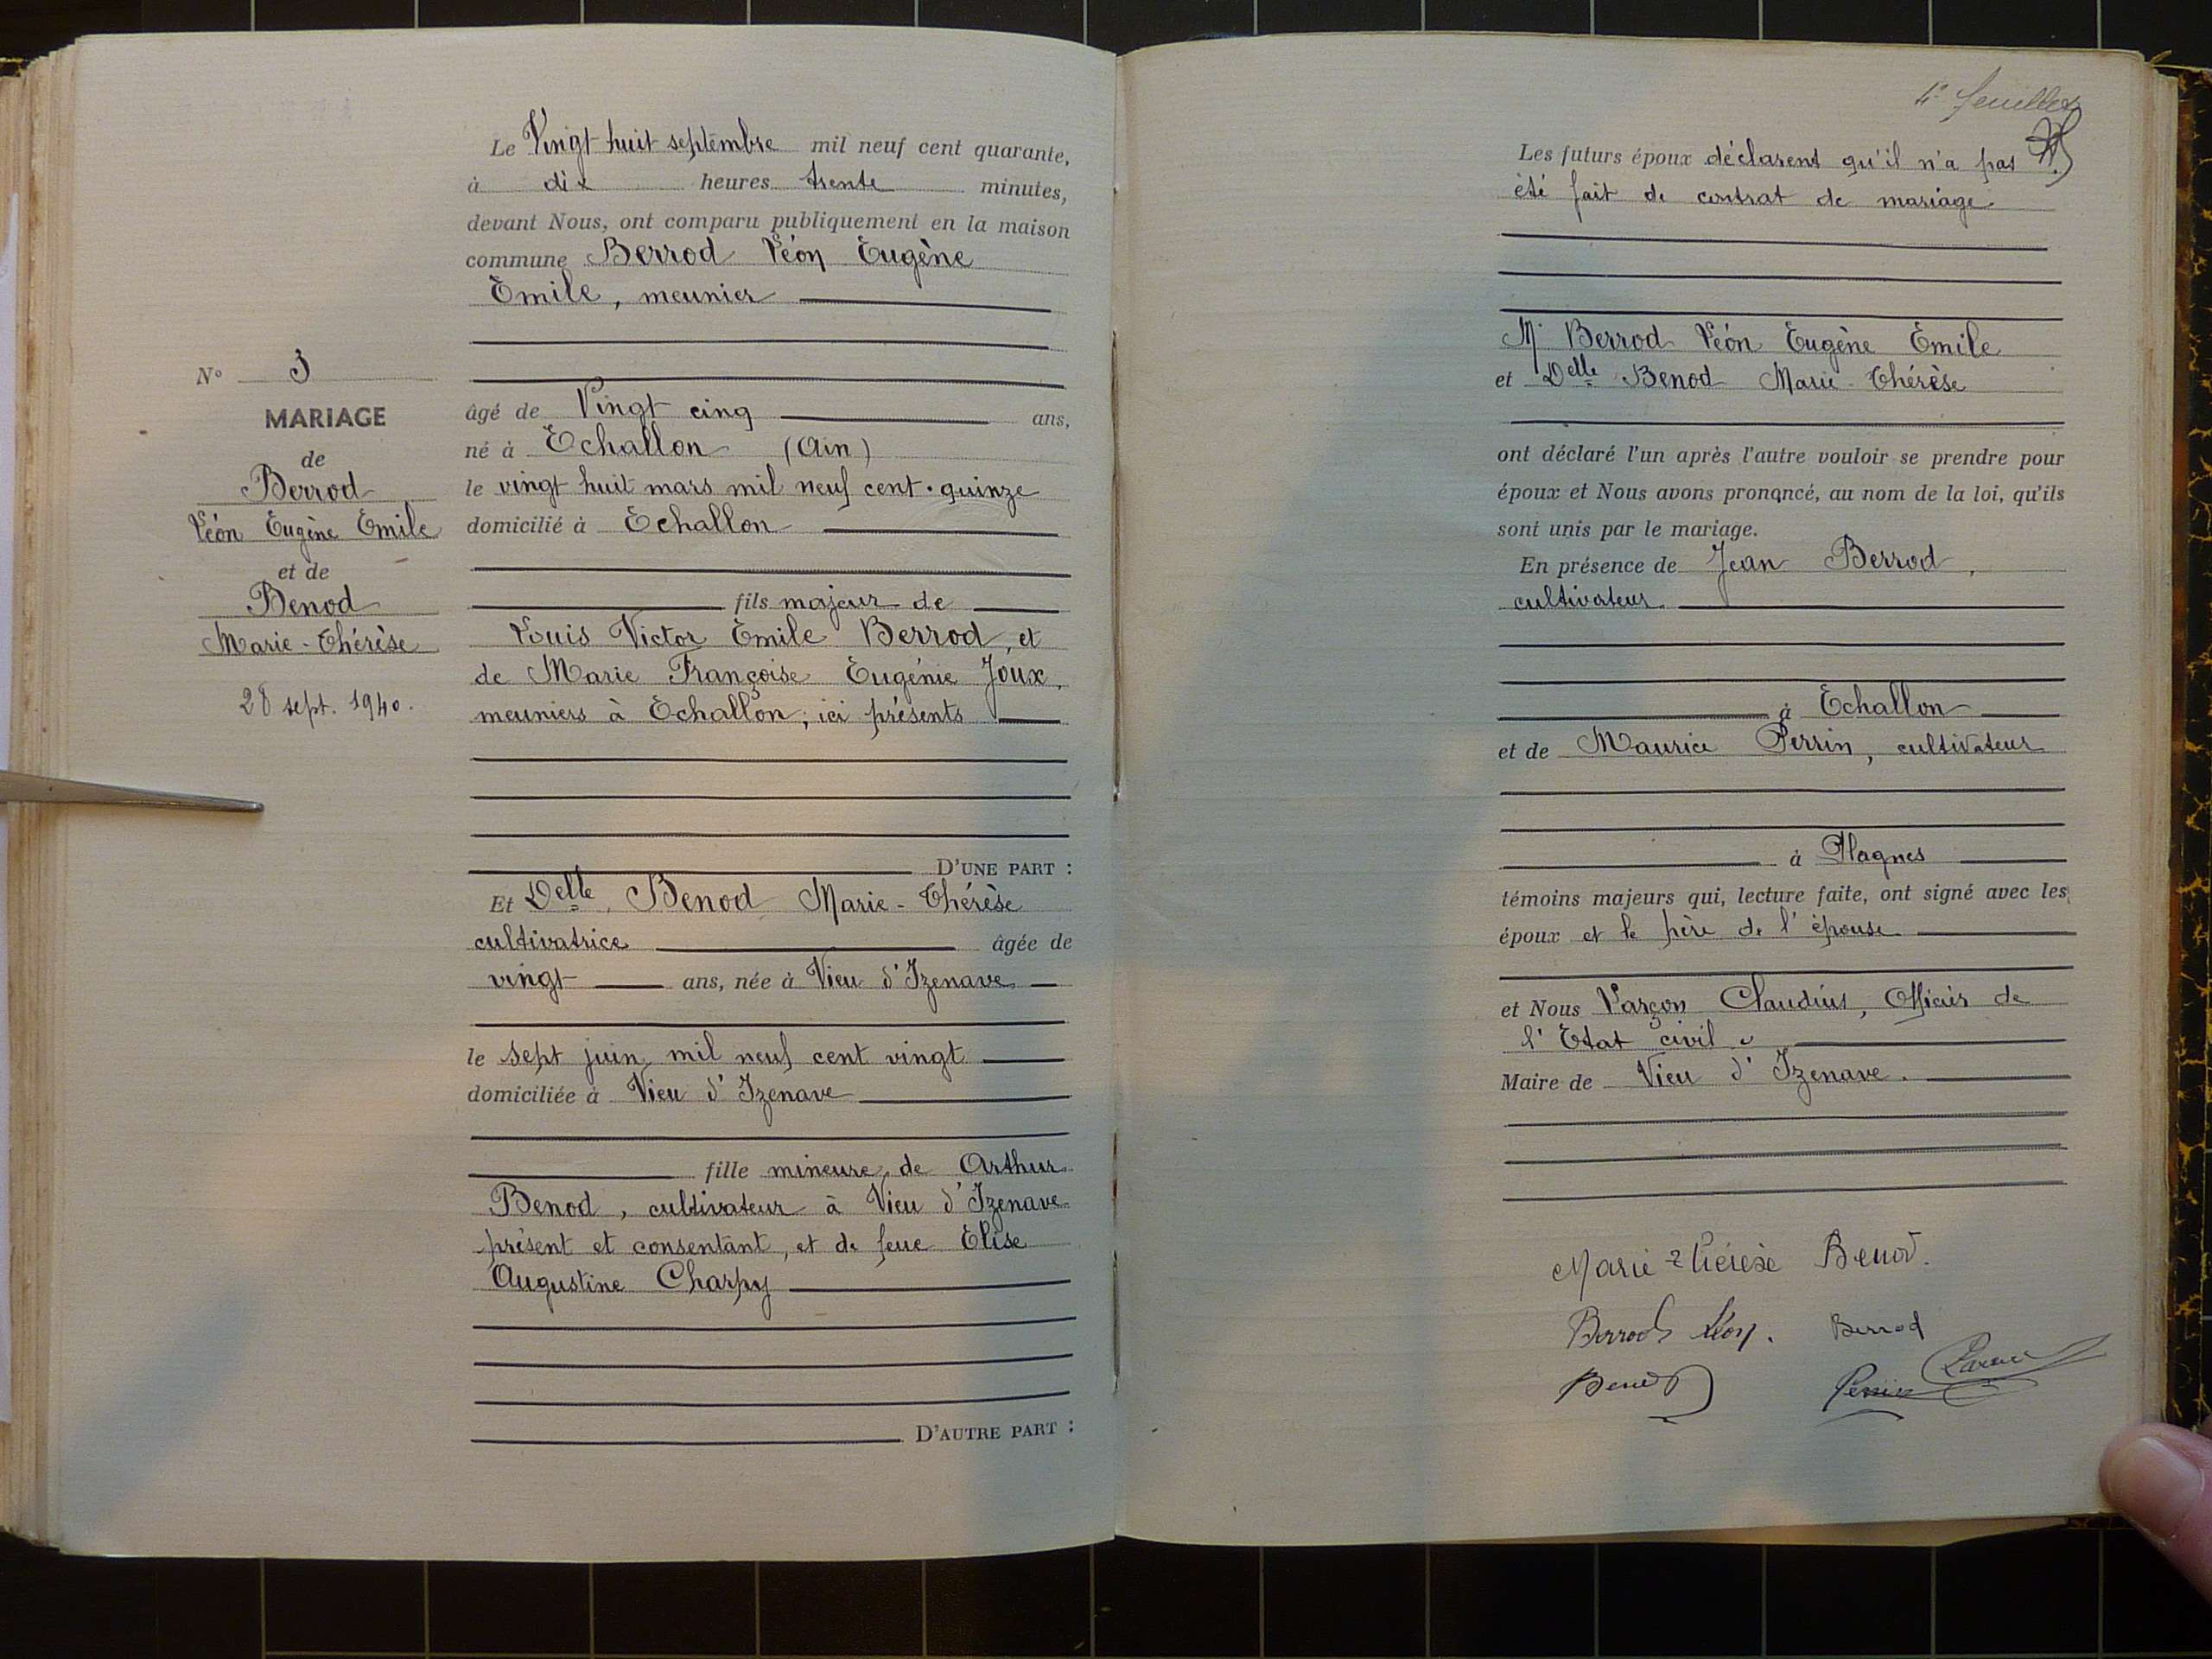 N° 3
MARIAGE
de
Berrod
Léon Eugène Emile
et de
Benod
Marie-Thérèse
28 sept. 1940.
Le Vingt huit septembre mil neuf cent quarante,
à dix heures trente minutes,
devant Nous, ont comparu publiquement en la maison
commune Berrod Léon Eugène
Emile, meunier
âgé de Vingt cinq ans,
né à Echallon (Ain)
le vingt huit mars mil neuf cent quinze
domicilié à Echallon
fils majeur de
Louis Victor Emile Berrod, et
de Marie Françoise Eugénie Joux,
meuniers à Echallon, ici présents
D'UNE PART :
Et Delle Benod Marie-Thérèse
cultivatrice âgée de
vingt ans, née à Vieu d'Izenave
le sept juin mil neuf cent vingt
domiciliée à Vieu d'Izenave
fille mineure de Arthur
Benod, cultivateur à Vieu d'Izenave
présent et consentant, et de feue Elise
Augustine Charpy
D'AUTRE PART :
4e feuillet
Les futurs époux déclarent qu'il n'a pas
été fait de contrat de mariage
Mr Berrod Léon Eugène Emile
et Delle Benod Marie-Thérèse
ont déclaré l'un après l'autre vouloir se prendre pour
époux et Nous avons prononcé, au nom de la loi, qu'ils
sont unis par le mariage.
En présence de Jean Berrod,
cultivateur
à Echallon
et de Maurice Perrin, cultivateur
à Plagnes
témoins majeurs qui, lecture faite, ont signé avec les
époux et le père de l'épouse
et Nous Larçon Claudius, Officier de
l'Etat civil
Maire de Vieu d'Izenave.
Marie Thérèse Benod.
Berrod Léon. Berrod
Benod Perrin